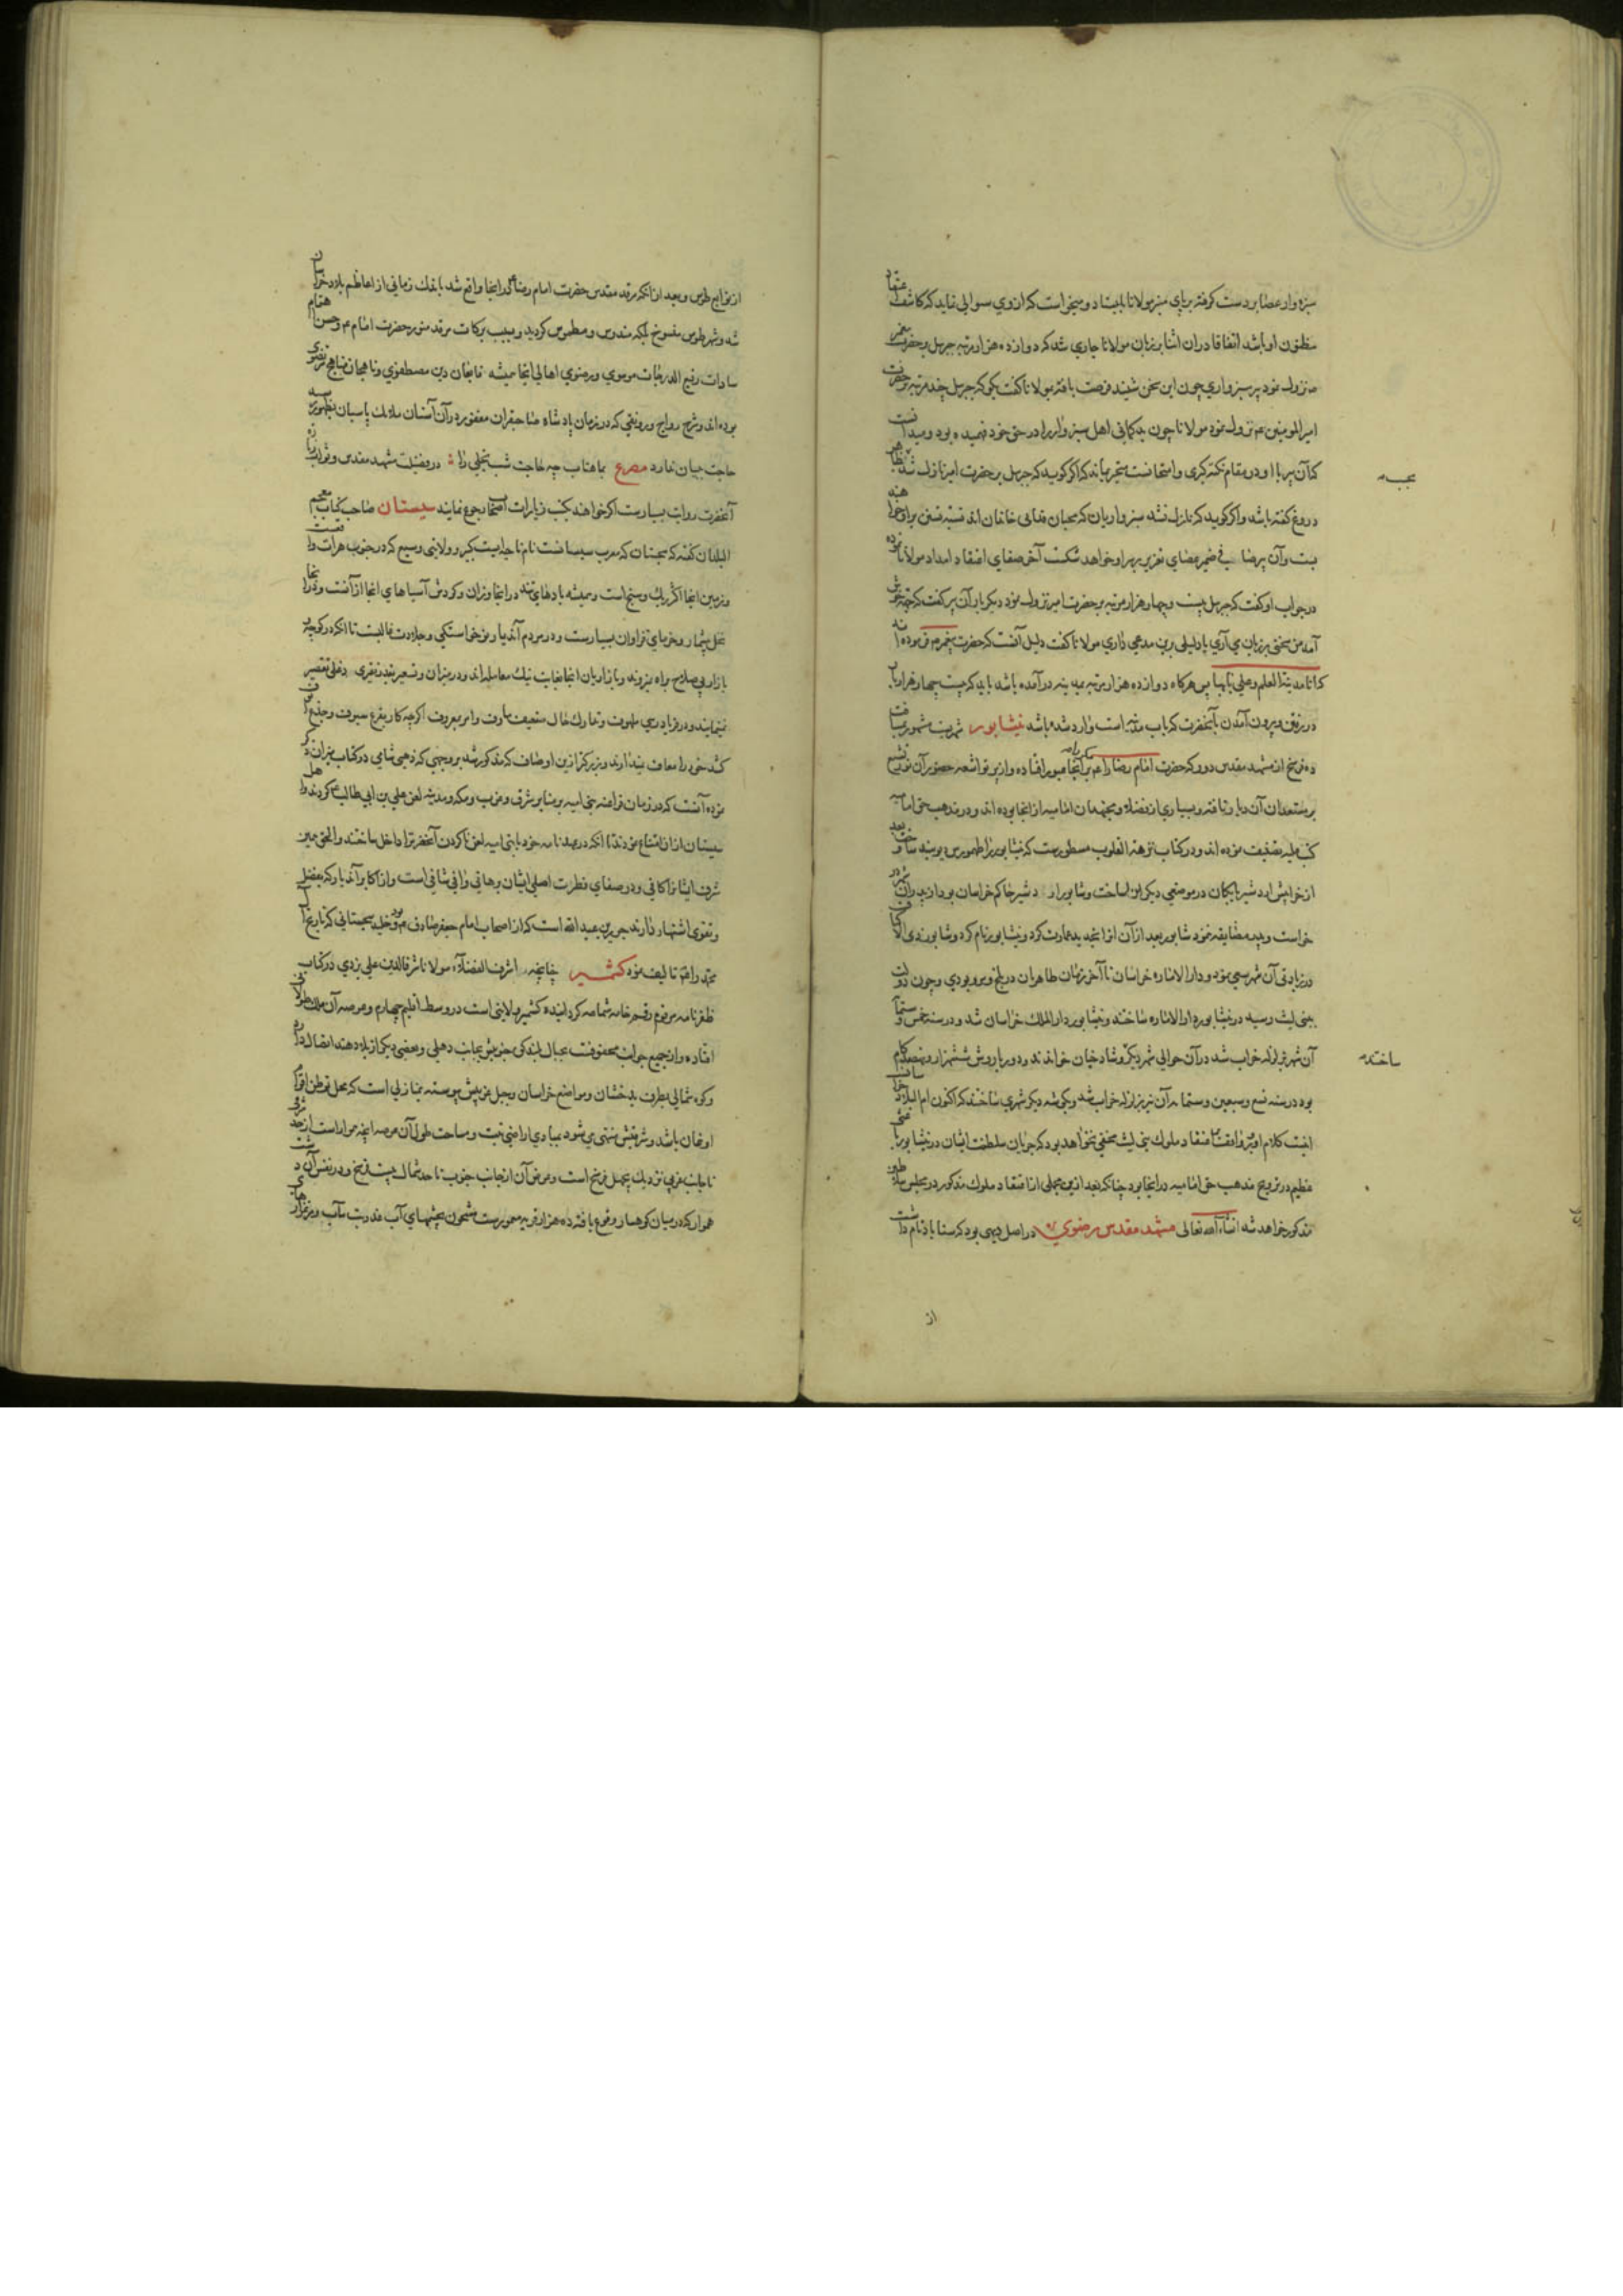 سبزوار عصا بر دست گرفته بر پای منبر مولانا بایستاد و میخواست که ازوی سوالی نماید که کاشف اعتقاد
مظنون او باشد اتفاقا در ان اثنا بر زبان مولانا جاری شد که دوازده هزار مرتبه جبرئیل بر حضرت پیغمبر
نزول نمود پیر سبزواری چون این سخن شنید فرصت یافته بمولانا گفت بگو که جبرئیل چند مرتبه بر حضرت
امیر المومنین ع نزول نمود مولانا چون بدگمانی اهل سبزوار را در حق خود فهمیده بود و میدانست
که آن پیر با او در مقام نکته گیری و امتحانست متحیر بماند که اگر گوید که جبرئیل بر حضرت امیر نازل شد بظاهر
بحسب
دروغ گفته باشد و اگر گوید که نازل نشد سبزواریان که محبان فدائی خاندان اند نسبة تسنن براو خواهند
بست و آن پیر عصای تعزیر بر سر او خواهد شکست آخر صفای اعتقاد امداد مولانا نموده
در جواب او گفت که جبرئیل بیست و چهار هزار مرتبه بر حضرت امیر نزول نمود دیگر بار آن پیر گفت که جهة خوش
آمد من سخنی بر زبان می آری یا دلیلی برین مدعی داری مولانا گفت دلیل آنست که حضرت پیغمبر م فرموده اند
که انا مدینة العلم و علی بابها پس هرگاه دوازده هزار مرتبه بمدینه درآمده باشد باید که بیست چهار هزار بار
در رفتن و بیرون آمدن بآنحضرت که باب مدینه است وارد شده باشد نیشابور شهریست مشهور بمسافت
ده فرسخ از مشهد مقدس دور که حضرت امام رضا را ع مکررا بر آنجا عبور افتاده و از پرتو اشعه حضور آن خورشید
بر مستعدان آن دیار تافته و بسیاری از فضلا و مجتهدان امامیه از انجا بوده اند و در مذهب حق امامیه
کتب علیه تصنیف نموده اند و در کتاب نزهة القلوب مسطورست که نیشابور را طهمورس دیوبند ساخت و بعد
از خرابیش اردشیر بابکان در موضعی دیگر او را بساخت و شابور ارد دشیر حاکم خراسان بود از پدر آن شهر
خواست و پدر مضایقه نمود شابور بعد از آن انرا تجدید عمارت کرد و نیشابور نام کرد و شابور ذی الاکتاف
در زیادتی آن شهر سعی نمود و دار الاماره خراسان تا آخر زمان طاهریان در بلخ و مرو بودی و چون دولت
ببنی لیث رسید در نیشابور دار الاماره ساختند و نیشابور دار الملک خراسان شد و در سنه خمس و ستمائه
آن شهر بزلزله خراب شد در آن حوالی شهر دیگر و شادیاخ خواندند و دور بارویش ششهزار و نهصد گام
ساختند
بود در سنه تسع و سبعین و ستمایه آن نیز بزلزله خراب شد و بگوشه دیگر شهری ساختند که اکنون ام البلاد خراسانست
اینست کلام او و مخفی نخواهد بود که جریان سلطنت ایشان در نیشابور باعثی
عظیم در ترویج مذهب حق امامیه در انجا بود چنانکه بعد ازین مجملی از اعتقاد ملوک مذکور در مجلس سلاطین
مذکور خواهد شد انشاء الله تعالی مشهد مقدس رضوی در اصل دیهی بود که سناباد نام داشت
از
از توابع طوس و بعد از آنکه مرقد مقدس حضرت امام رضا ع در انجا واقع شد باندک زمانی از اعاظم بلاد خراسان
شد و شهر طوس منسوخ بلکه مندرس و مطموس گردید و بسبب برکات مرقد منور حضرت امام ع و حسن اهتمام
سادات رفیع الدرجات موسوی و رضوی اهالی انجا همیشه تابعان دین مصطفوی و ناهجان مناهج مرتضوی
بوده اند و شرح رواج و رونقی که در زمان پادشاه صاحبقران مغفور در آن آستان ملائک پاسبان بظهور رسیده
حاجت ببیان ندارد مصرع بماهتاب چه حاجت شب تجلی را در فضیلت مشهد مقدس و ثواب زیارت
آنحضرت روایت بسیارست اگر خواهند بکتب زیارات اصحاب رجوع نمایند سیستان صاحب کتاب معجم
البلدان گفته که سجستان که معرب سیستانست نام ناحیه ایست کبیر و ولایتی وسیع که در جنوب هرات واقعست
و زمین انجا اکثر ریگ و سنج است و همیشه بادهای تند در انجا وزان و گردش آسیاهای انجا از آنست و در انجا
نخل بیشمار و خرمای فراوان بسیارست و در مردم آندیار نوخواستگی و جلادت غالبست تا انکه در کوچه
بازار بی سلاح راه نروند و بازاریان انجا بغایت نیک معامله اند و در میزان و تسعیر بقدر نقیری دغلی تقصیر
نمینمایند و در فریاد رسی ملهوف و تدارک حال ضعیف معروف و امر بمعروف اگرچه کار بقرع سیوف و جدع انوف
کشد خود را معاف نمیدارند و بزرگتر از این اوصاف که مذکور شد بر وجهی که ذهبی شامی در کتاب میزان ذکر
نموده آنست که در زمان فراعنه بنی امیه بر منابر شرق و غرب و مکه و مدینه لعن علی بن ابی طالب ع کردند و اهل
سیستان از ان امتناع نمودند تا انکه در عهد نامه خود با بنی امیه لعن ناکردن آنحضرت را داخل ساختند و الحق همین
شرف ایشانرا کافی و در صفای فطرت اصلی ایشان برهانی وافی شافی است و از اکابر آندیار که بفضل
و تقوی اشتهار دارند حریز بن عبد الله است که از اصحاب امام جعفر صادق ع بوده و خلید سجستانی که تاریخ آل
محمد را ع تالیف نموده کشمیر چنانچه اشرف الفضلاء مولانا شرف الدین علی یزدی در کتاب
ظفر نامه مرقوم رقم خامه شمامه گردانیده کشمیر ولایتی است در وسط اقلیم چهارم و عرصه آن ملک طولانی
افتاده و از جمیع جوانب محفوفست بجبال بلند کوه جنوبیش بجانب دهلی و بعضی دیگر از بلاد هند اتصال دارد
و کوه شمالی بطرف بدخشان و مواضع خراسان و جبل غربیش پیوسته بمنازلی است که محل توطن اقوام
اوغان باشد و شرقیش منتهی می شود بمبادی اراضی تبت و مساحت طول آن عرصه انچه هموار است از حد شرقی
تا جانب غربی نزدیک بچهل فرسخ است و عرض آن از جانب جنوب تا حد شمال بیست فرسخ و در نفس آن دشت
هموار که در میان کوهسار وقوع یافته ده هزار قریه معمورست مشحون بچشمهای آب عذوبت مآب و مرغزارهای